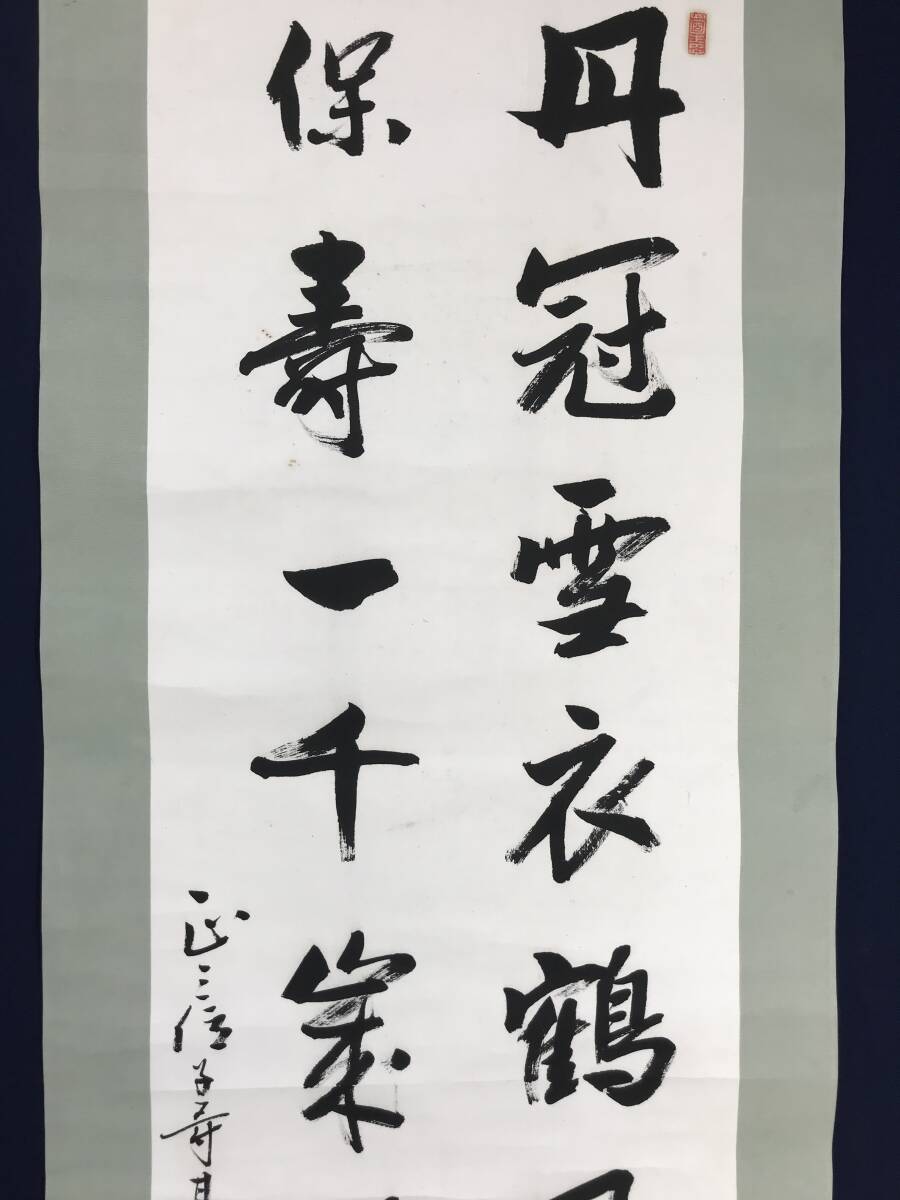 丹冠雪衣鶴
保壽一千歳
正三位